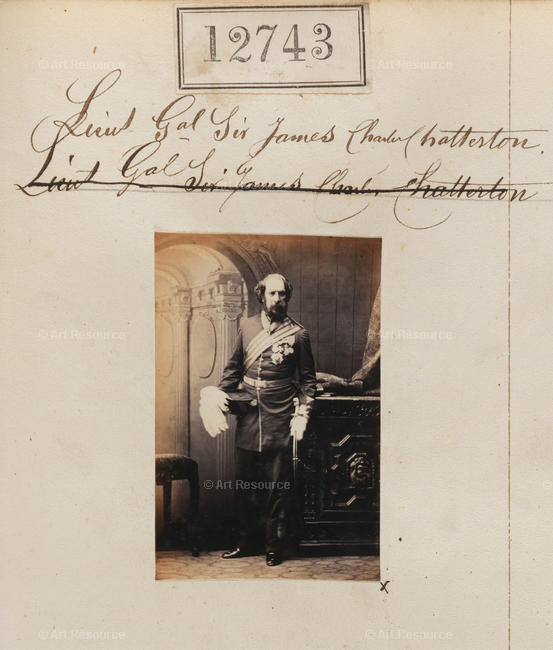 © Art Resource © Art Resource
12743
Lieut Gal Sir James Charles Chatterton.
Lieut Gal Sir James Charles Chatterton
© Art Resource © Art Resource
© Art Resource
x
© Art Resource © Art Resource